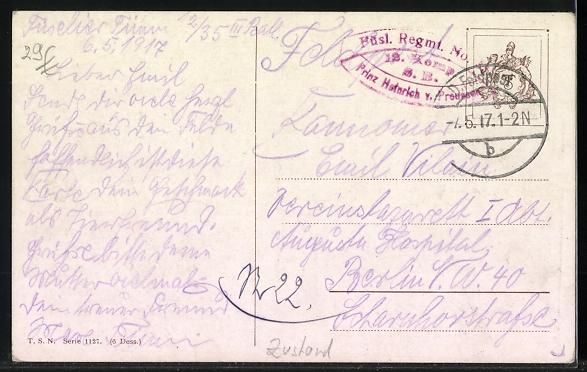 Füselier Timm 12/35 III Batl.
6.5.1917
29/
Lieber Emil
Sende dir viele herzl
Grüße aus dem Felde
hoffendlich ist diese
Karte dein Geschmack
als Tierfreund.
Grüße bitte deine
Mutter vielmals
dein treuer Freund
T. S. N. Serie 1127. (6 Dess.)
Füsl. Regmt. No.
12. Komp.
S. B.
Prinz Heinrich v. Preussen
-7.5.17.1-2N
b
Kanonier
Emil
Vereinslazarett I Abt.
Augusta Hospital
Berlin N.W. 40
Scharnhorststraße
Nr 22.
Zustand